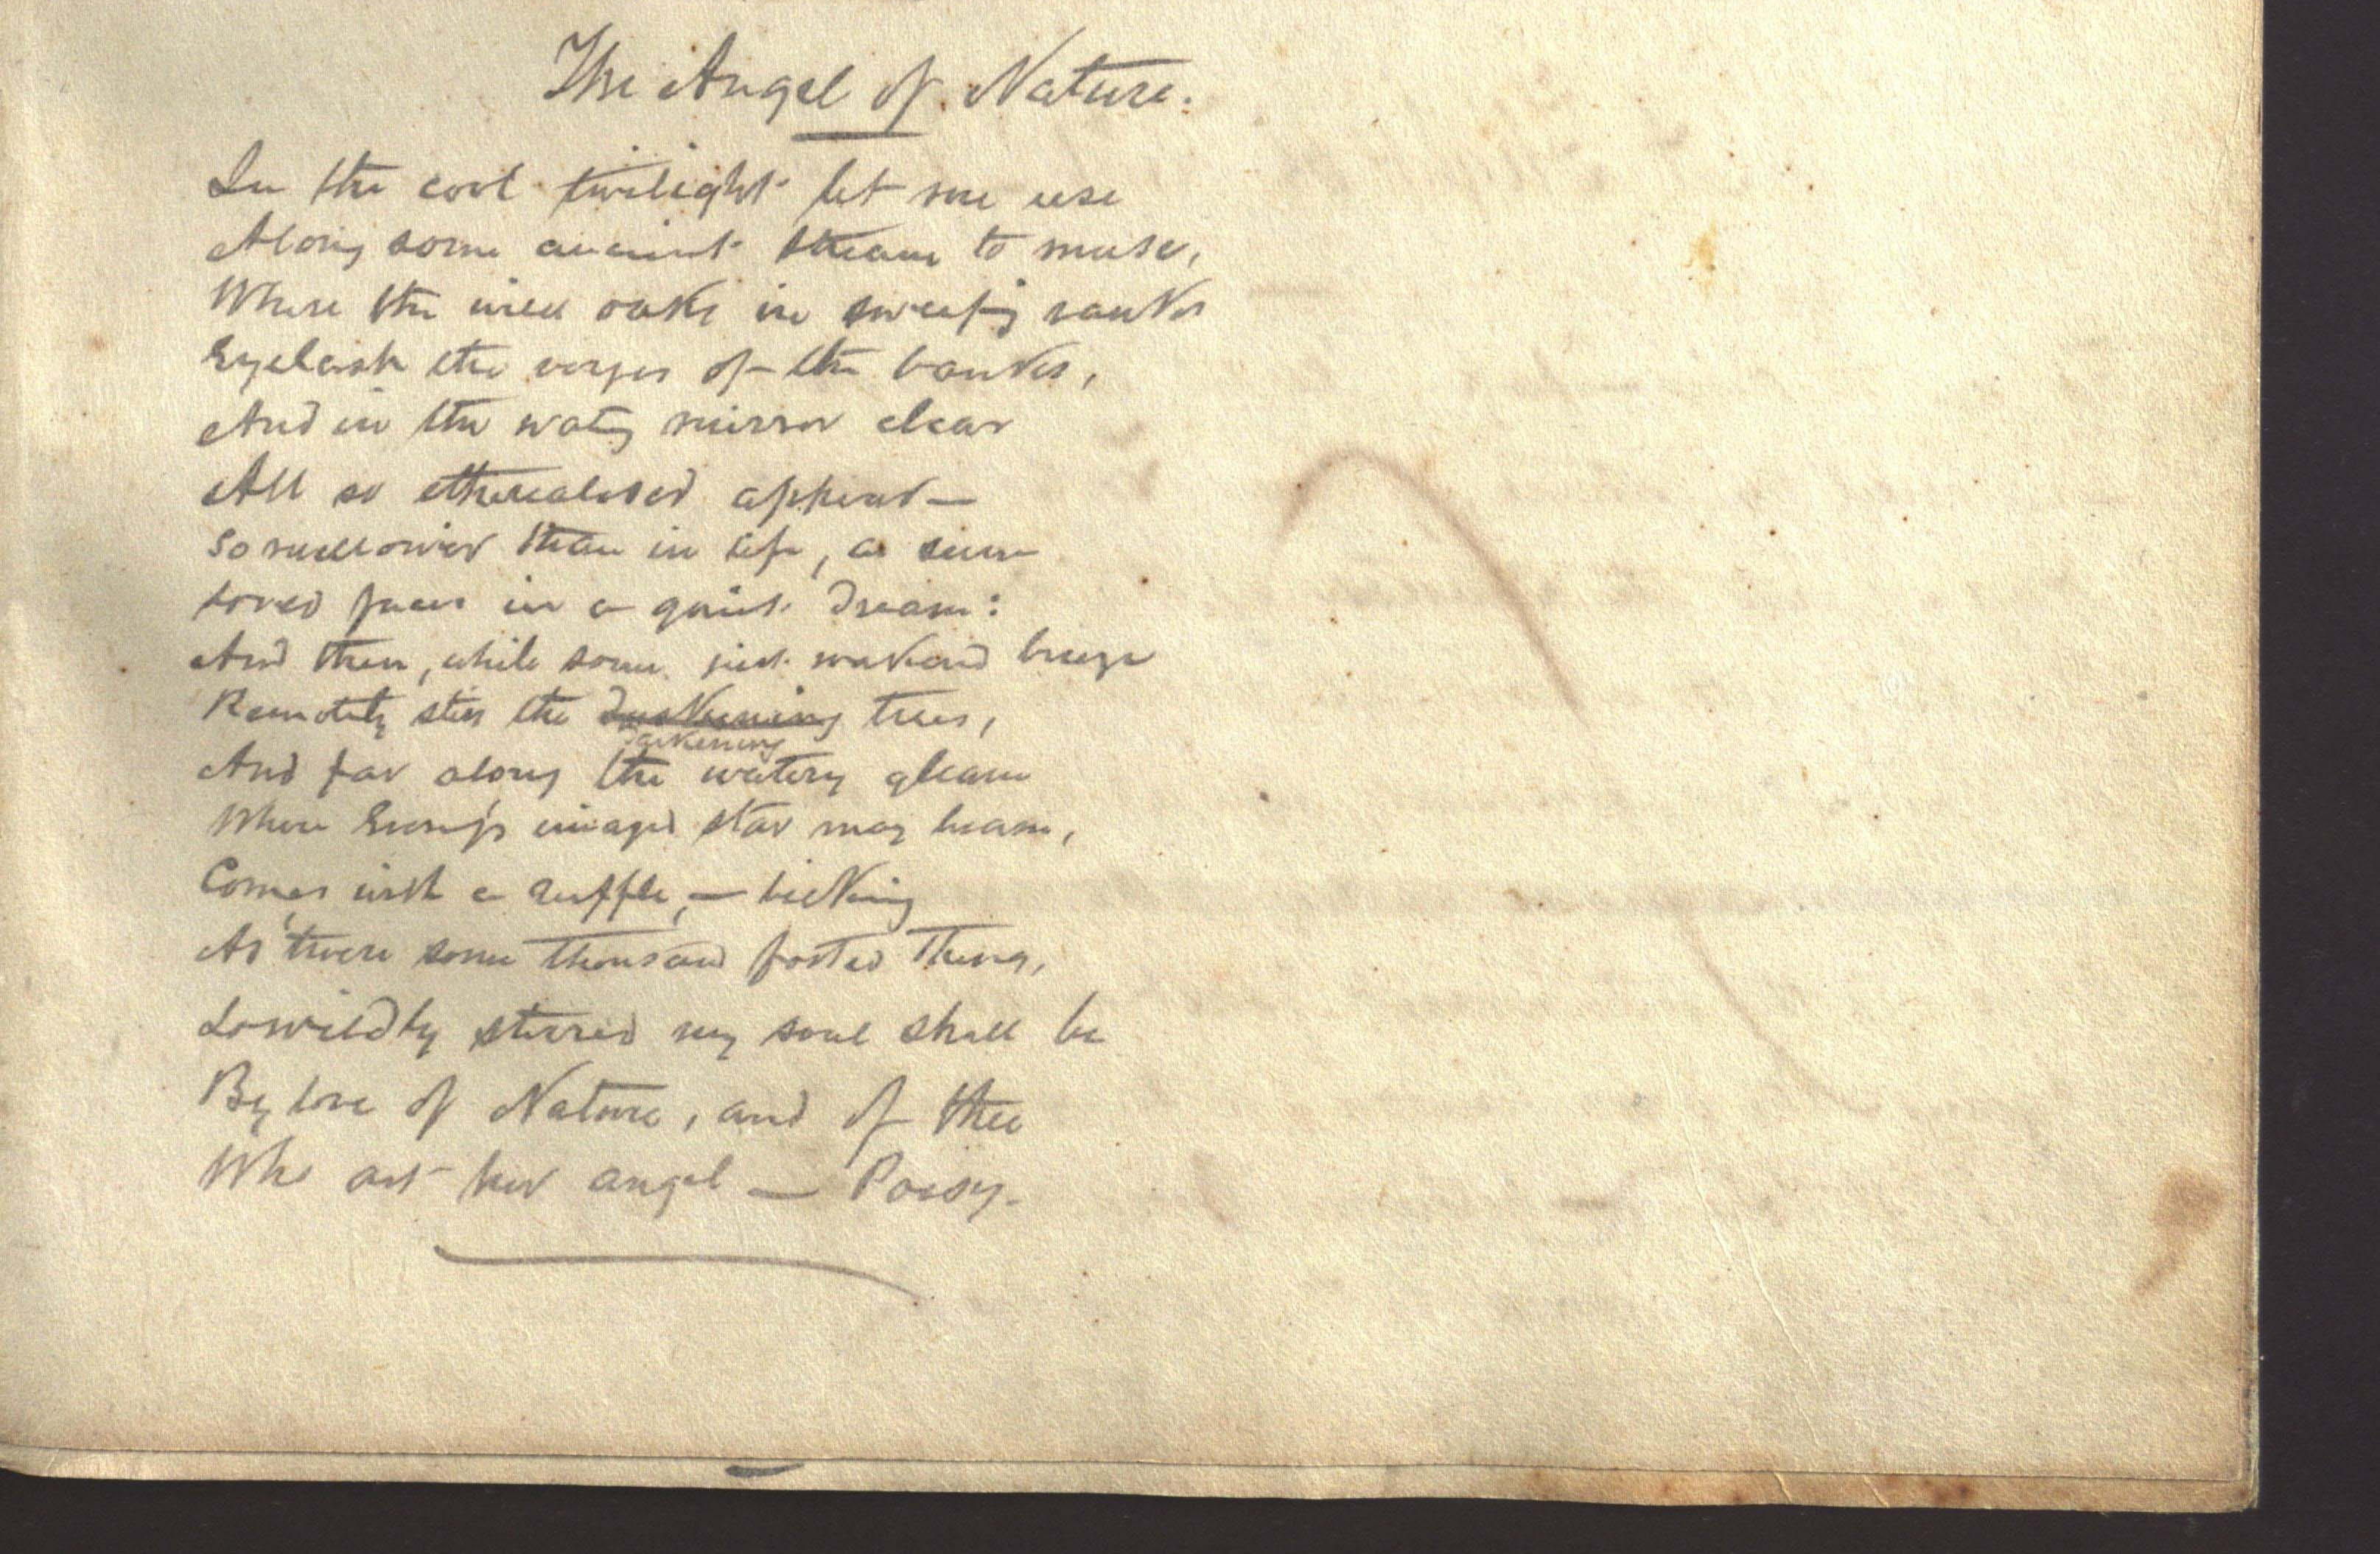 The Angel of Nature.
In the cool twilight let me use
Along some ancient stream to muse,
Where the wild oaks in sweeping ranks
Eyelash the verges of the banks,
And in the watry mirror clear
All so etherealised appear—
So mellower than in life, as seem
Loved faces in a quiet dream:
And then, while some just wakend breeze
Remotely stirs the duskening trees,
darkening
And far along the watery gleam
Where Evening's imaged star may beam,
Comes with a ruffle, —
As 'twere some thousand footed Thing,
So wildly stirred my soul shall be
By love of Nature, and of thee
Who art her angel — Poesy.